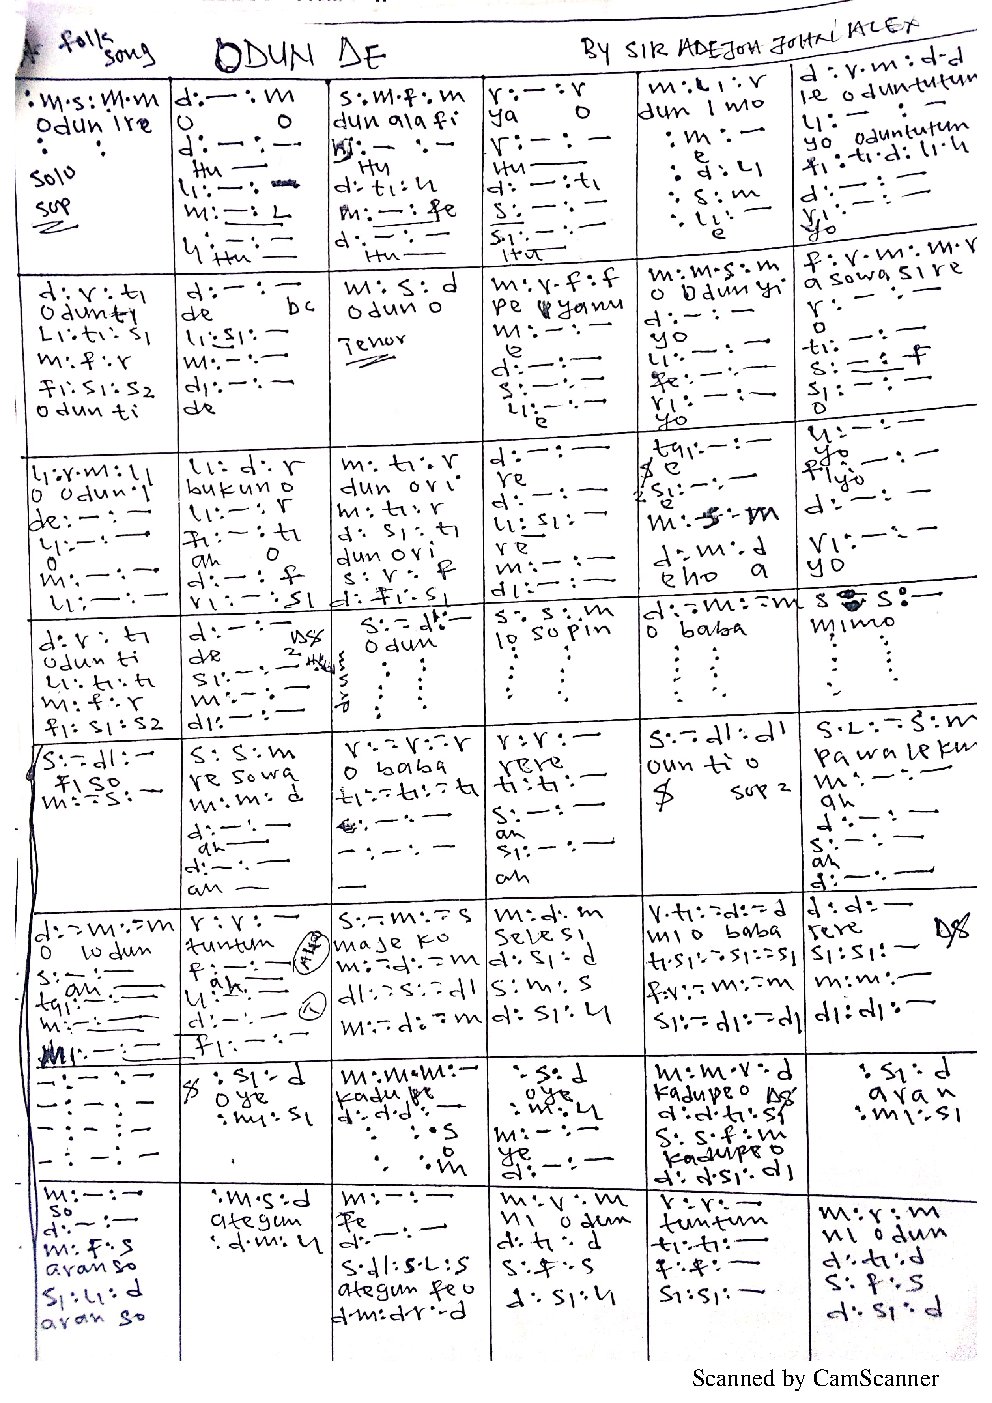 A folk song
ODUN DE
BY SIR ADEJOH JOHN ALEX
:m.s:m.m
Odun Ire
: :
Solo
Sup
d:—:m
O O
d:—:—
Hu
l₁:—:
m:—:L
l₁:—:—
Hu
s:m.f:m
dun alafi
:—:—
Hu
d:t₁:l₁
m:—:fe
d:—:—
Hu
r:—:r
ya O
r:—:—
Hu
d:—:t₁
s:—:—
s₁:—:—
Hu
m:l₁:r
dun I mo
:m:—
e
:d:l₁
:s:m
:l₁:—
e
d:r.m:d-d
le oduntutun
l₁:—:—
yo oduntutun
f₁:t₁.d:l₁.l₁
d:—:—
r₁:—:—
yo
d:r:t₁
odunti
L₁:t₁:s₁
m:f:r
f₁:s₁:s₂
odun ti
d:—:—
de DC
l₁:s₁:—
m:—:—
d₁:—:—
de
m:s:d
odun o
Tenor
m:r.f:f
pe yanu
m:—:—
e
d:—:—
s:—:—
l₁:—:—
e
m:m.s:m
o odunyi
d:—:—
yo
l₁:—:—
fe:—:—
r₁:—:—
yo
f:r.m:m.r
a sowasire
r:—:—
o
t₁:—:—
s:—:f
s₁:—:—
o
l₁:r.m:l₁
o odun
de:—:—
l₁:—:—
o
m:—:—
l₁:—:—
l₁:d:r
bukuno
l₁:—:r
f₁:—:t₁
ah o
d:—:f
r₁:—:s₁
m:t₁:r
dun ori
m:t₁:r
d:s₁:t₁
dun ori
s:r:f
d:f₁:s₁
d:—:—
re
d:—:—
l₁:s₁:—
re
m:—:—
d₁:—:—
ta₁:—:—
$ e
2 s₁:—:—
e
m:s:m
d:m:d
eho a
l₁:—:—
yo
f₁:—:—
yo
d:—:—
r₁:—:—
yo
d:r:t₁
odun ti
l₁:t₁:t₁
m:f:r
f₁:s₁:s₂
d:—:—
de DS 2
s₁:—:—
m:—:—
d₁:—:—
s:-d¹:—
odun
s:s:m
lo sopin
d:-m:-m
o baba
s s:—
mimo
s:-d¹:—
Fiso
m:-s:—
s:s:m
re sowa
m:m:d
d:—:—
ah
d:—:—
ah
r:-r:-r
o baba
t₁:-t₁:-t₁
:—:—
—:—:—
r:r:—
rere
t₁:t₁:—
s:—:—
ah
s₁:—:—
ah
s:-d¹:d¹
oun ti o
$ sup 2
s.L:-s:m
pawaleku
m:—:—
ah
d:—:—
s:—:—
ah
d:—:—
d:-m:-m
o lodun
s:—:—
ah
ta₁:—:—
m:—:—
m₁:—:—
r:r:—
tuntun
f:—:—
ah
l₁:—:—
d:—:—
f₁:—:—
s:-m:-s
maje ko
m:-d:-m
d¹:-s:-d¹
m:-d:-m
m:d:m
selesi
d:s₁:d
s:m:s
d:s₁:l₁
r.t₁:-d:-d
mi o baba
t₁.s₁:-s₁:-s₁
f.r:-m:-m
s₁:-d₁:-d₁
d:d:—
rere DS
s₁:s₁:—
m:m:—
d₁:d₁:—
—:—:—
—:—:—
—:—:—
—:—:—
$ :s₁:-d
oye
:m₁:s₁
m:m.m:—
kadupe
d:d.d:—
: :.s
o
: :.m
:s:d
oye
:m:l₁
m:—:—
ye
d:—:—
m:m.r:d
kadupeo DS
d:d.t₁:s₁
s:s.f:m
kadupeo
d:d.s₁:d₁
:s₁:d
aran
:m₁:s₁
m:—:—
so
d:—:—
m:f:s
aranso
s₁:l₁:d
aran so
:m.s:d
ategun
:d.m:l₁
m:—:—
fe
d:—:—
s.d¹:s.L:s
ategun feo
d.m:d.r:-d
m:r:m
ni odun
d:t₁:d
s:f:s
d:s₁:l₁
r:r:—
tuntun
t₁:t₁:—
f:f:—
s₁:s₁:—
m:r:m
ni odun
d:t₁:d
s:f:s
d:s₁:d
Scanned by CamScanner